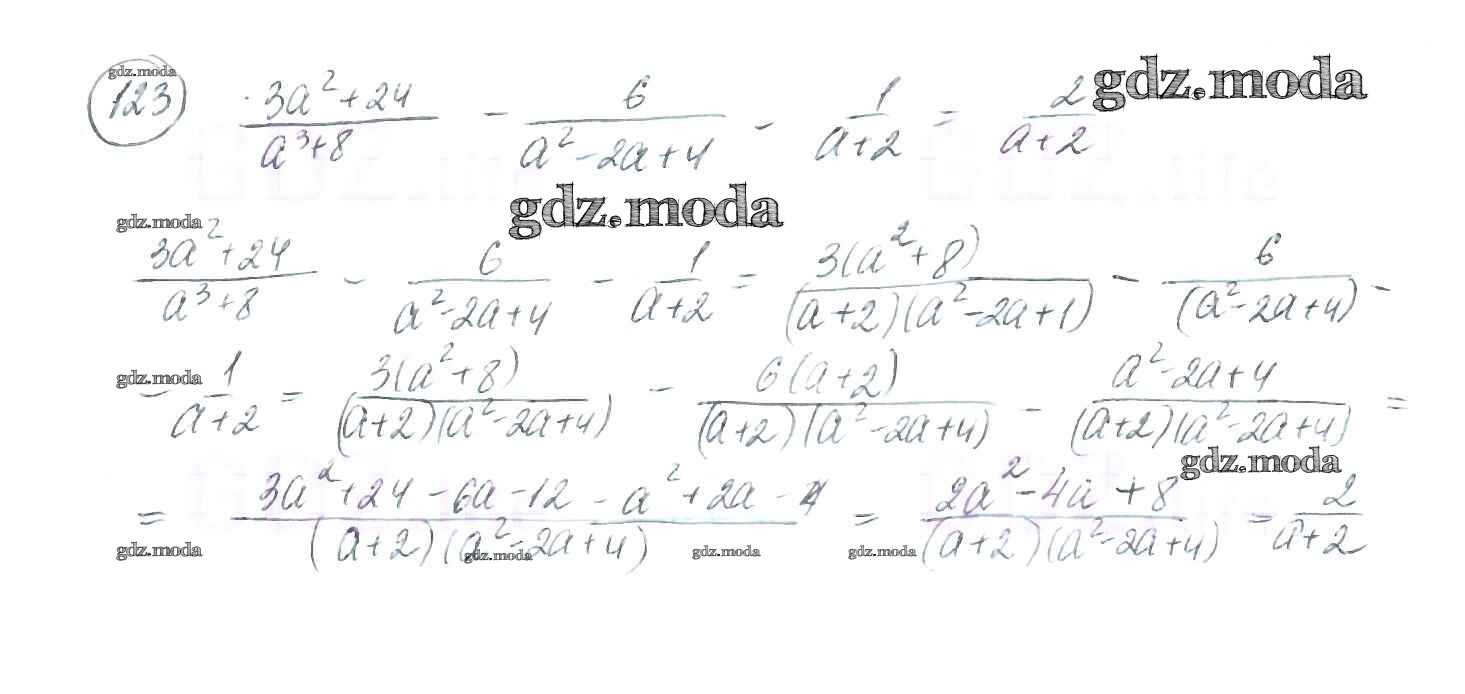 gdz.moda
123 3a²+24/a³+8 - 6/a²-2a+4 - 1/a+2 = 2/a+2 gdz.moda
gdz.moda gdz.moda
3a²+24/a³+8 - 6/a²-2a+4 - 1/a+2 = 3(a²+8)/(a+2)(a²-2a+1) - 6/(a²-2a+4) -
gdz.moda
- 1/a+2 = 3(a²+8)/(a+2)(a²-2a+4) - 6(a+2)/(a+2)(a²-2a+4) - a²-2a+4/(a+2)(a²-2a+4) =
gdz.moda
= 3a²+24-6a-12-a²+2a-4/(a+2)(a²-2a+4) = 2a²-4a+8/(a+2)(a²-2a+4) = 2/a+2
gdz.moda gdz.moda gdz.moda gdz.moda